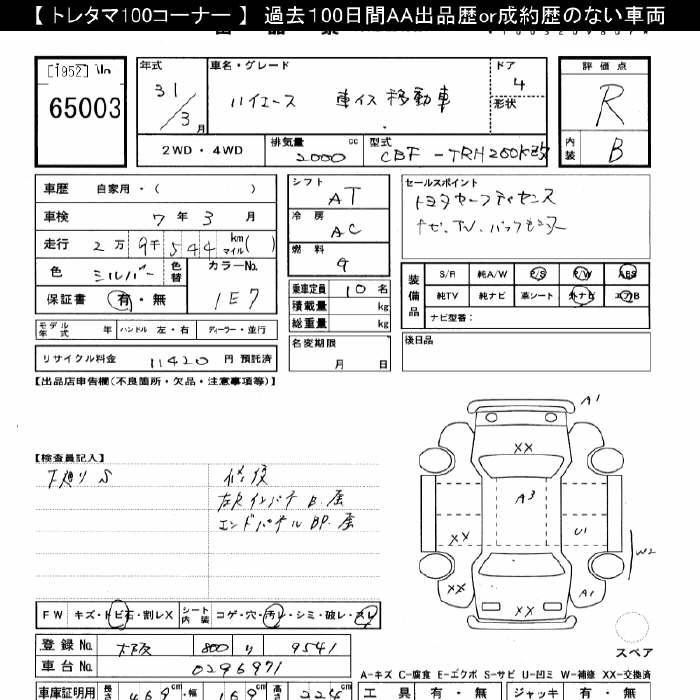 【 トレタマ100コーナー 】 過去100日間AA出品歴or成約歴のない車両
[1952]
65003
年式 車名・グレード ドア 評価点
31/3月 ハイエース 車イス移動車 4 形状 R
2WD・4WD 排気量 2000 cc 型式 CBF-TRH200K改 内装 B
車歴 自家用・( )
車検 7年 3月
走行 2万 9千 544 km マイル( )
色 シルバー 色替 カラーNo. 1E7
保証書 有・無
モデル年式 年 ハンドル 左・右 ディーラー・並行
リサイクル料金 11420 円 預託済
シフト AT
冷房 AC
燃料
乗車定員 10 名
積載量 kg
総重量 kg
名変期限 月 日
セールスポイント
トヨタセーフティセンス
ナビ.TV.バックモニター
装備品 S/R 純A/W P/S P/W ABS
純TV 純ナビ 革シート 外ナビ エアB
ナビ型番:
後日品
【出品店申告欄(不良箇所・欠品・注意事項等)】
【検査員記入】
下廻り S 修復
左Rインパネ B.歪
エンドパネル BP.歪
A1
XX
A3
XX U1 W2
XX A1
XX
スペア
FW キズ・トビ石・割レX シート内装 コゲ・穴・汚レ・シミ・破レ・スレ
登録No. 大阪 800 9541
車台No. 0296971
A-キズ C-腐食 E-エクボ S-サビ U-凹ミ W-補修 XX-交換済
車庫証明用 長さ 469 cm 幅 169 cm 高さ 224 cm
工具 有・無 ジャッキ 有・無